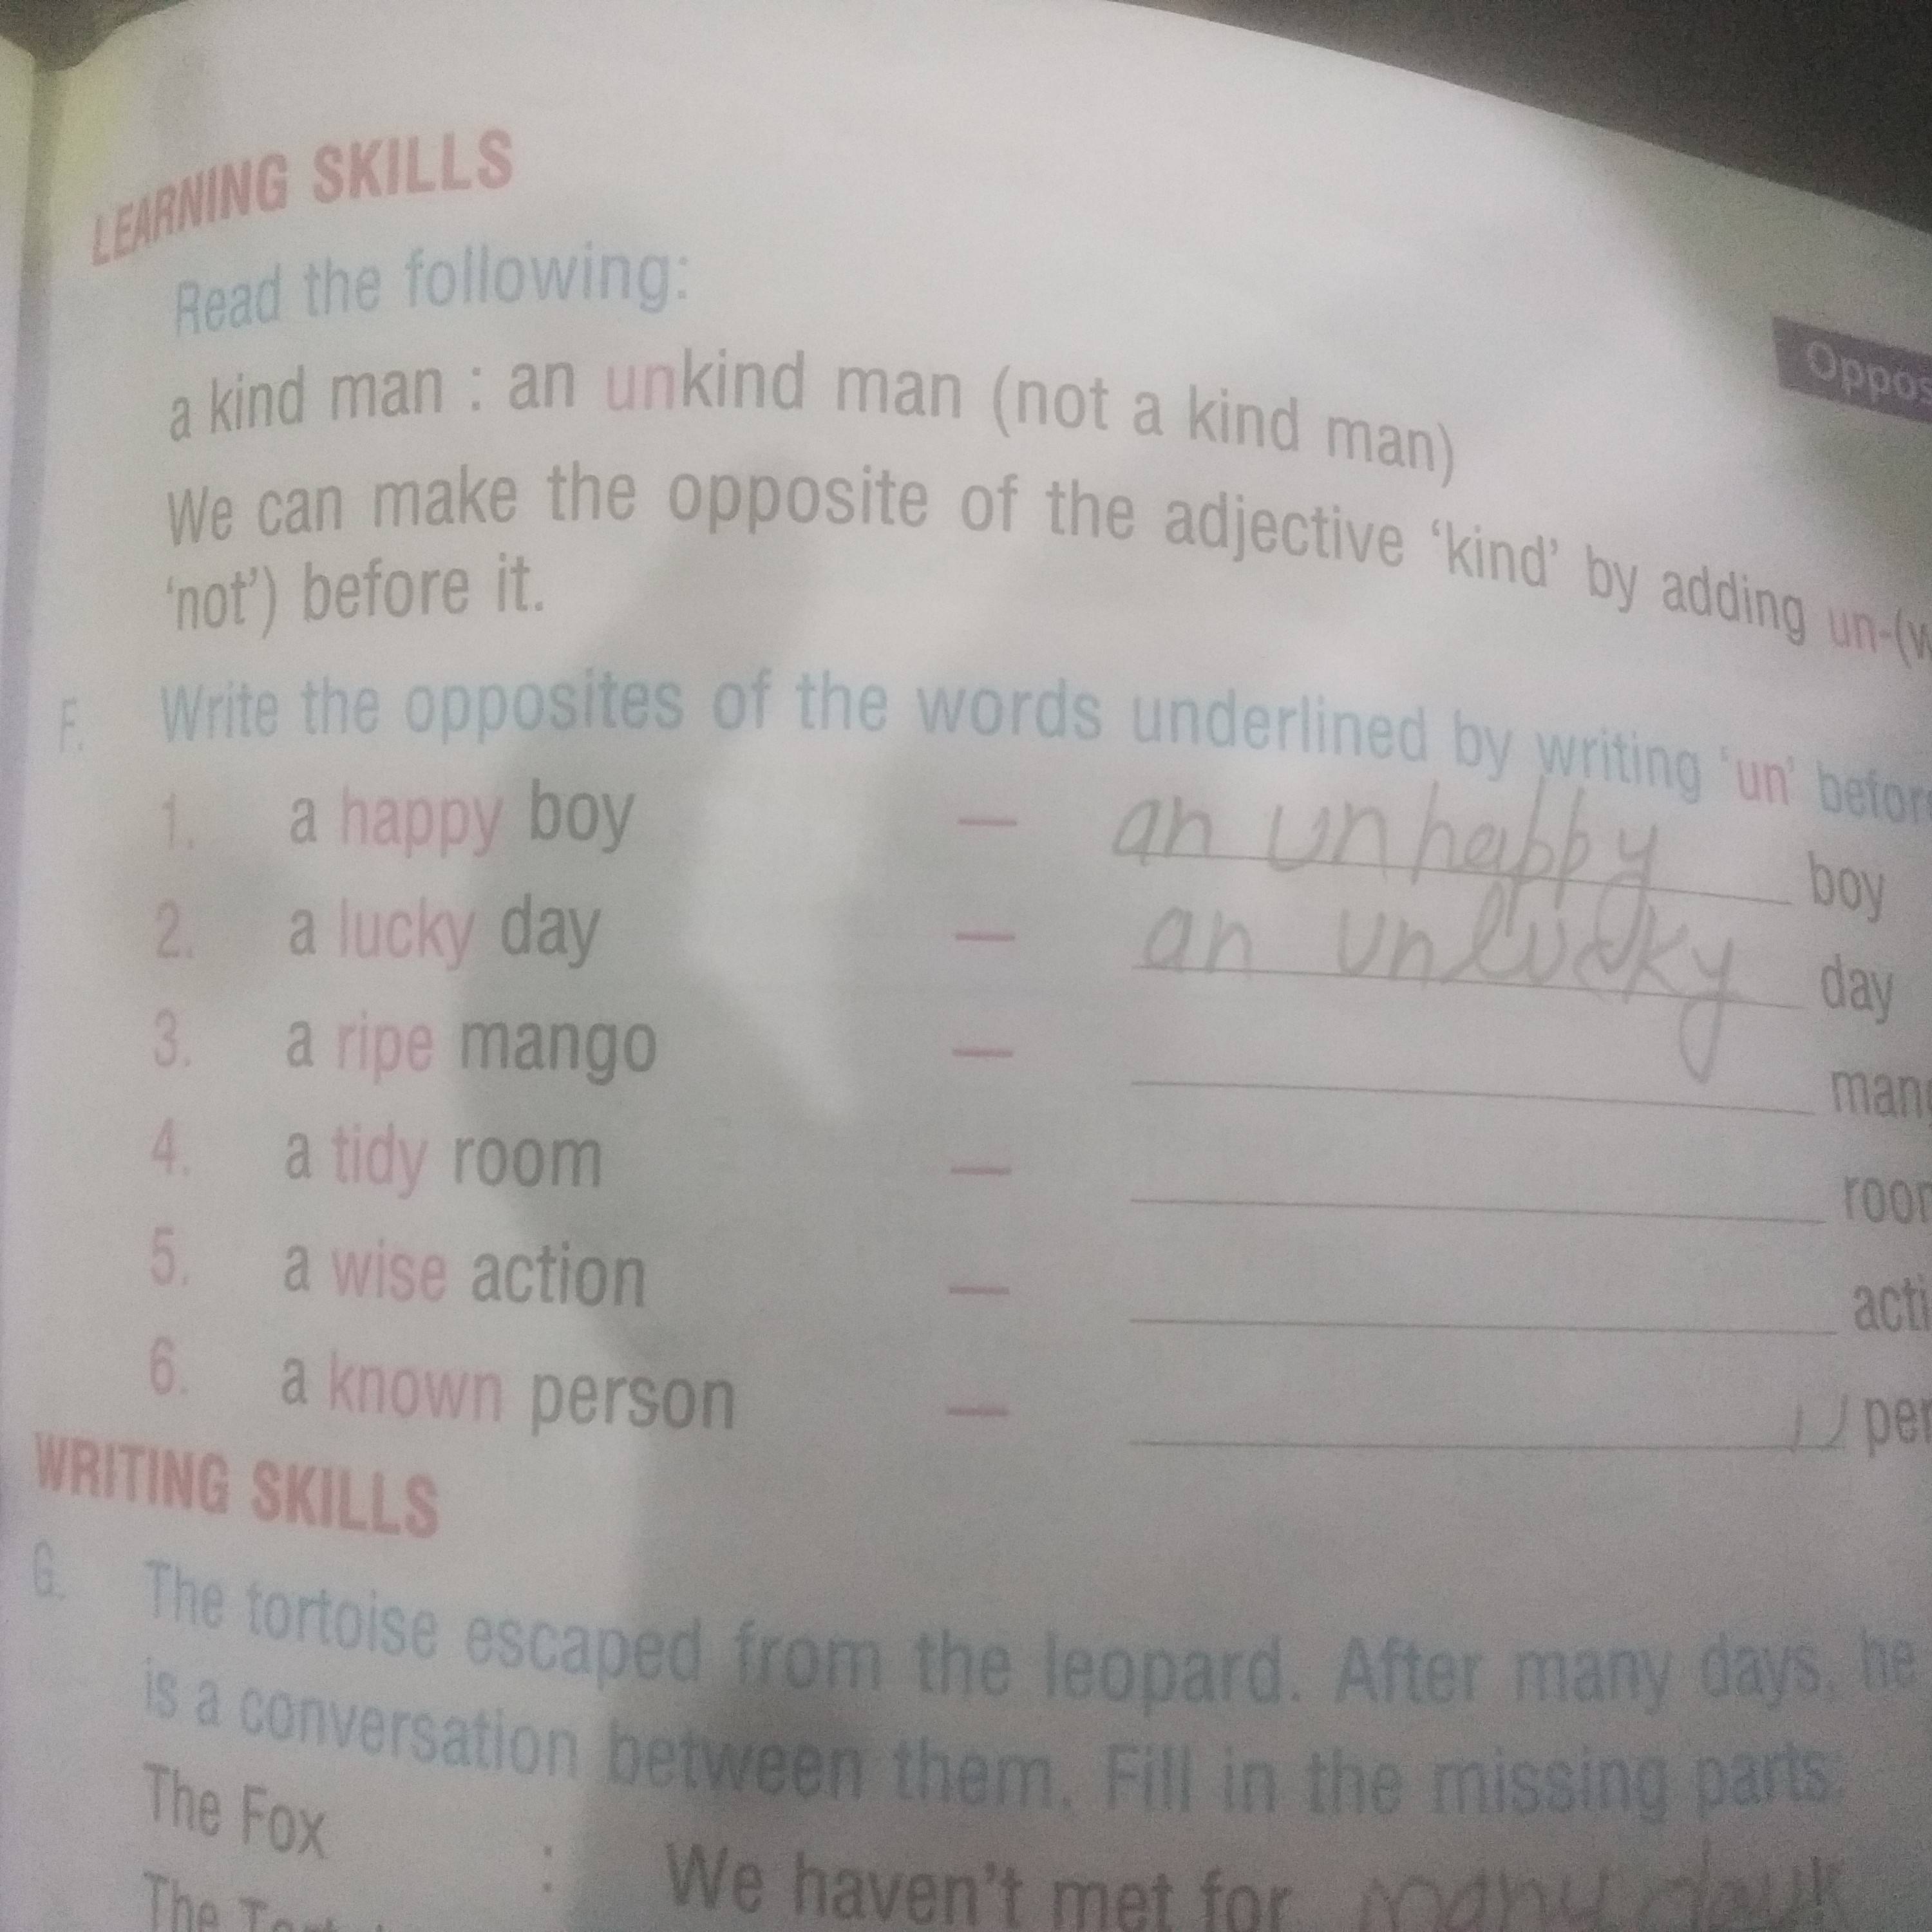 LEARNING SKILLS
Read the following:
Oppos
a kind man : an unkind man (not a kind man)
We can make the opposite of the adjective ‘kind’ by adding un-(w
‘not’) before it.
F. Write the opposites of the words underlined by writing ‘un’ befor
1. a happy boy — an unhappy boy
2. a lucky day — an unlucky day
3. a ripe mango — mang
4. a tidy room — roor
5. a wise action — acti
6. a known person — per
WRITING SKILLS
G. The tortoise escaped from the leopard. After many days, he
is a conversation between them. Fill in the missing parts.
The Fox : We haven't met for many
The